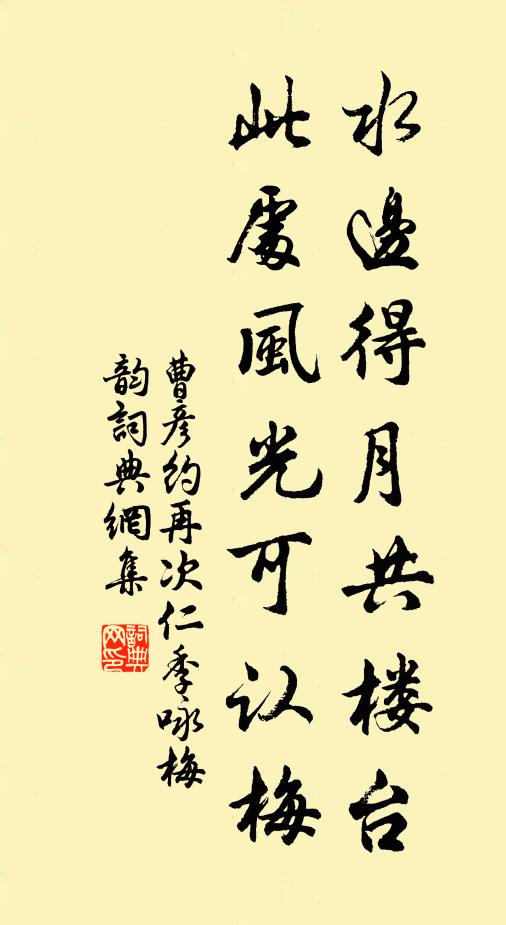 水邊得月共楼台
此處風光可认梅
曹彦约再次仁季咏梅
韵詞典網集
詞典網印